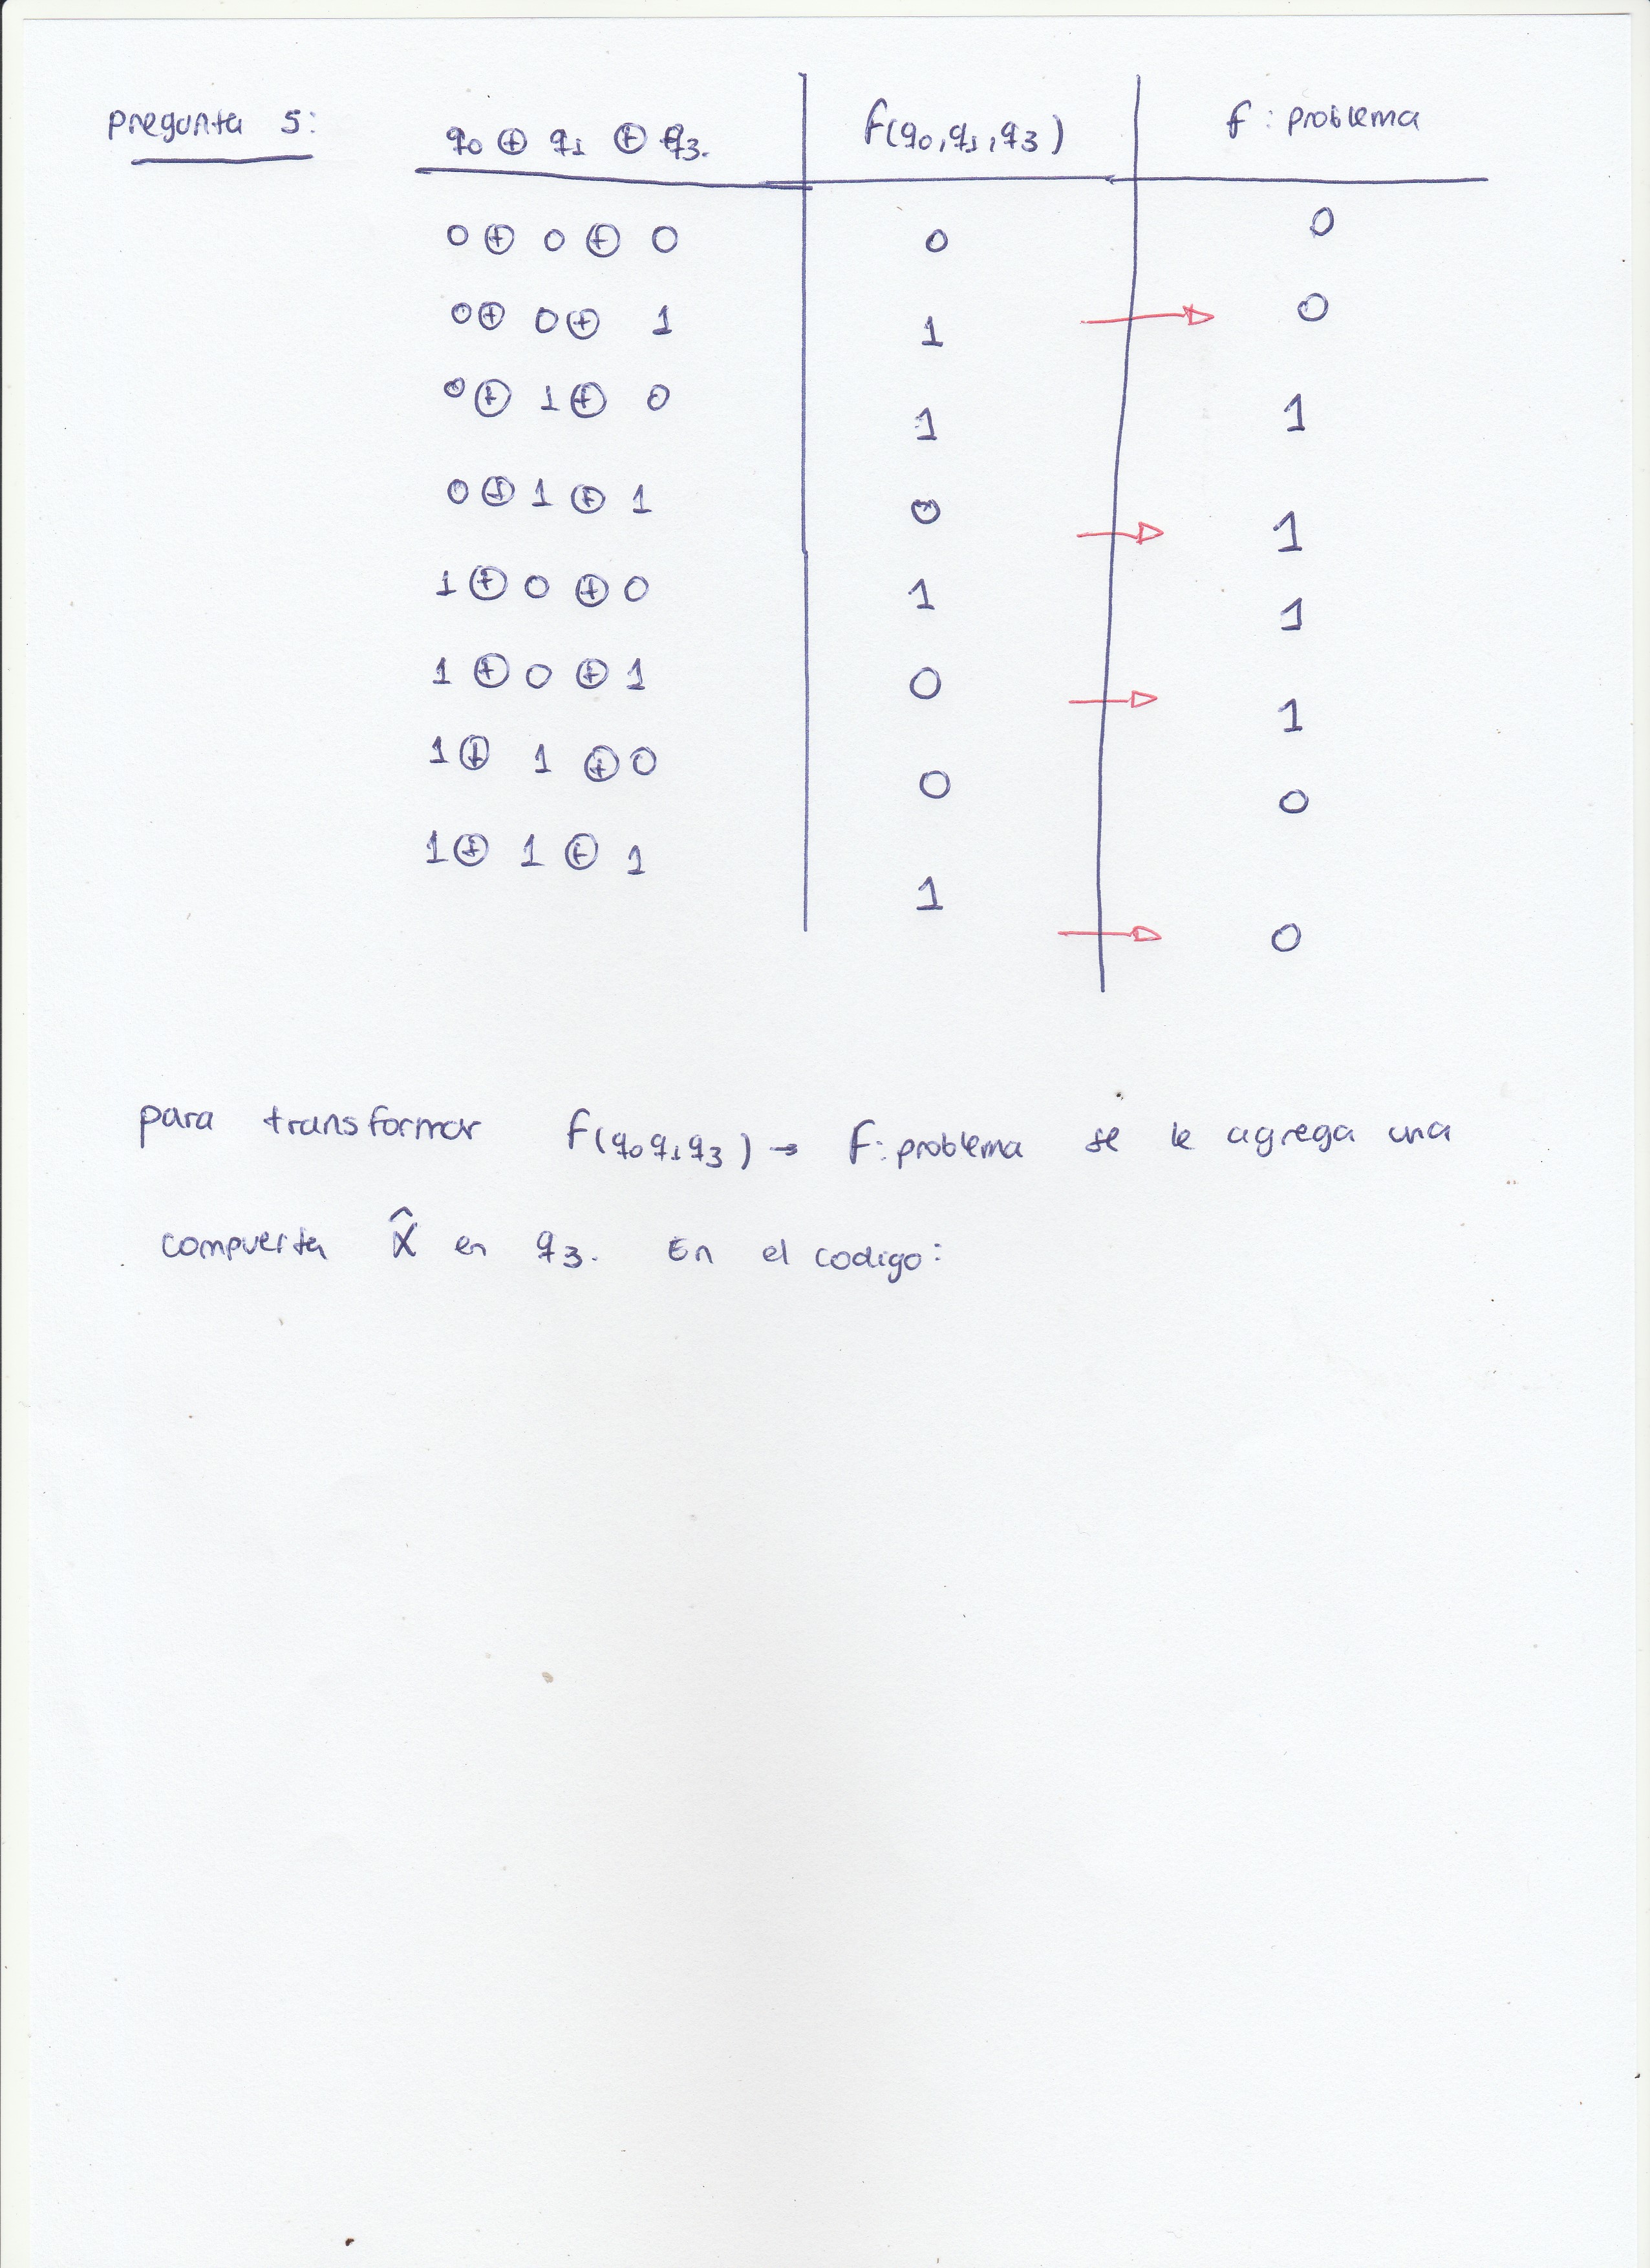 pregunta 5:
q0 ⊕ q1 ⊕ q3. f(q0,q1,q3) f: problema
0 ⊕ 0 ⊕ 0 0 0
0 ⊕ 0 ⊕ 1 1 → 0
0 ⊕ 1 ⊕ 0 1 1
0 ⊕ 1 ⊕ 1 0 → 1
1 ⊕ 0 ⊕ 0 1 1
1 ⊕ 0 ⊕ 1 0 → 1
1 ⊕ 1 ⊕ 0 0 0
1 ⊕ 1 ⊕ 1 1 → 0
para transformar f(q0q1q3) → f: problema se le agrega una
compuerta X̂ en q3. En el codigo: